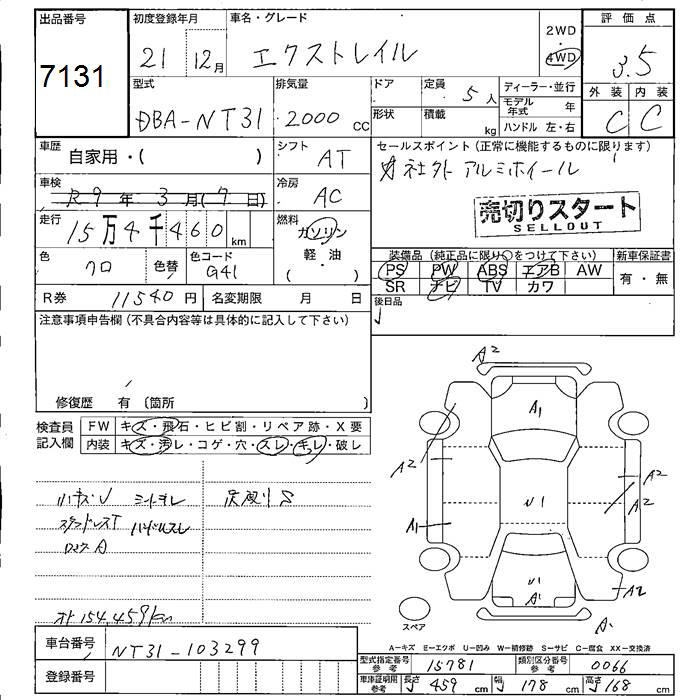 出品番号
7131
初度登録年月
21 12月
車名・グレード
エクストレイル
2WD
4WD
評価点
3.5
外装 内装
C C
型式
DBA-NT31
排気量
2000 CC
ドア
形状
定員
5 人
積載
kg
ディーラー・並行
モデル年式 年
ハンドル 左・右
車歴
自家用・( )
シフト
AT
セールスポイント(正常に機能するものに限ります)
社外アルミホイール
売切りスタート
SELLOUT
車検
R9年3月(7日)
冷房
AC
走行
15万4千460km
燃料
ガソリン
軽・油
( )
色
クロ
色替
色コード
G41
装備品(純正品に限り○をつけて下さい)
PS PW ABS エアB AW
SR ナビ TV カワ
新車保証書
有・無
R券 11540円
名変期限 月 日
後日品
注意事項申告欄(不具合内容等は具体的に記入して下さい)
修復歴 有(箇所 )
検査員記入欄
FW キズ・飛石・ヒビ割・リペア跡・X要
内装 キズ・汚レ・コゲ・穴・スレ・キレ・破レ
シートヨレ
ハンドルスレ
154,459km
A2
A1
A2
A2
A2
U1
A1
U1
A1
A2
スペア
A-キズ E-エクボ U-凹み W-補修跡 S-サビ C-腐食 XX-交換済
車台番号
NT31-103299
登録番号
型式指定番号 参考
15781
類別区分番号 参考
0066
車庫証明用 参考
長さ 459 cm
幅 178 cm
高さ 168 cm